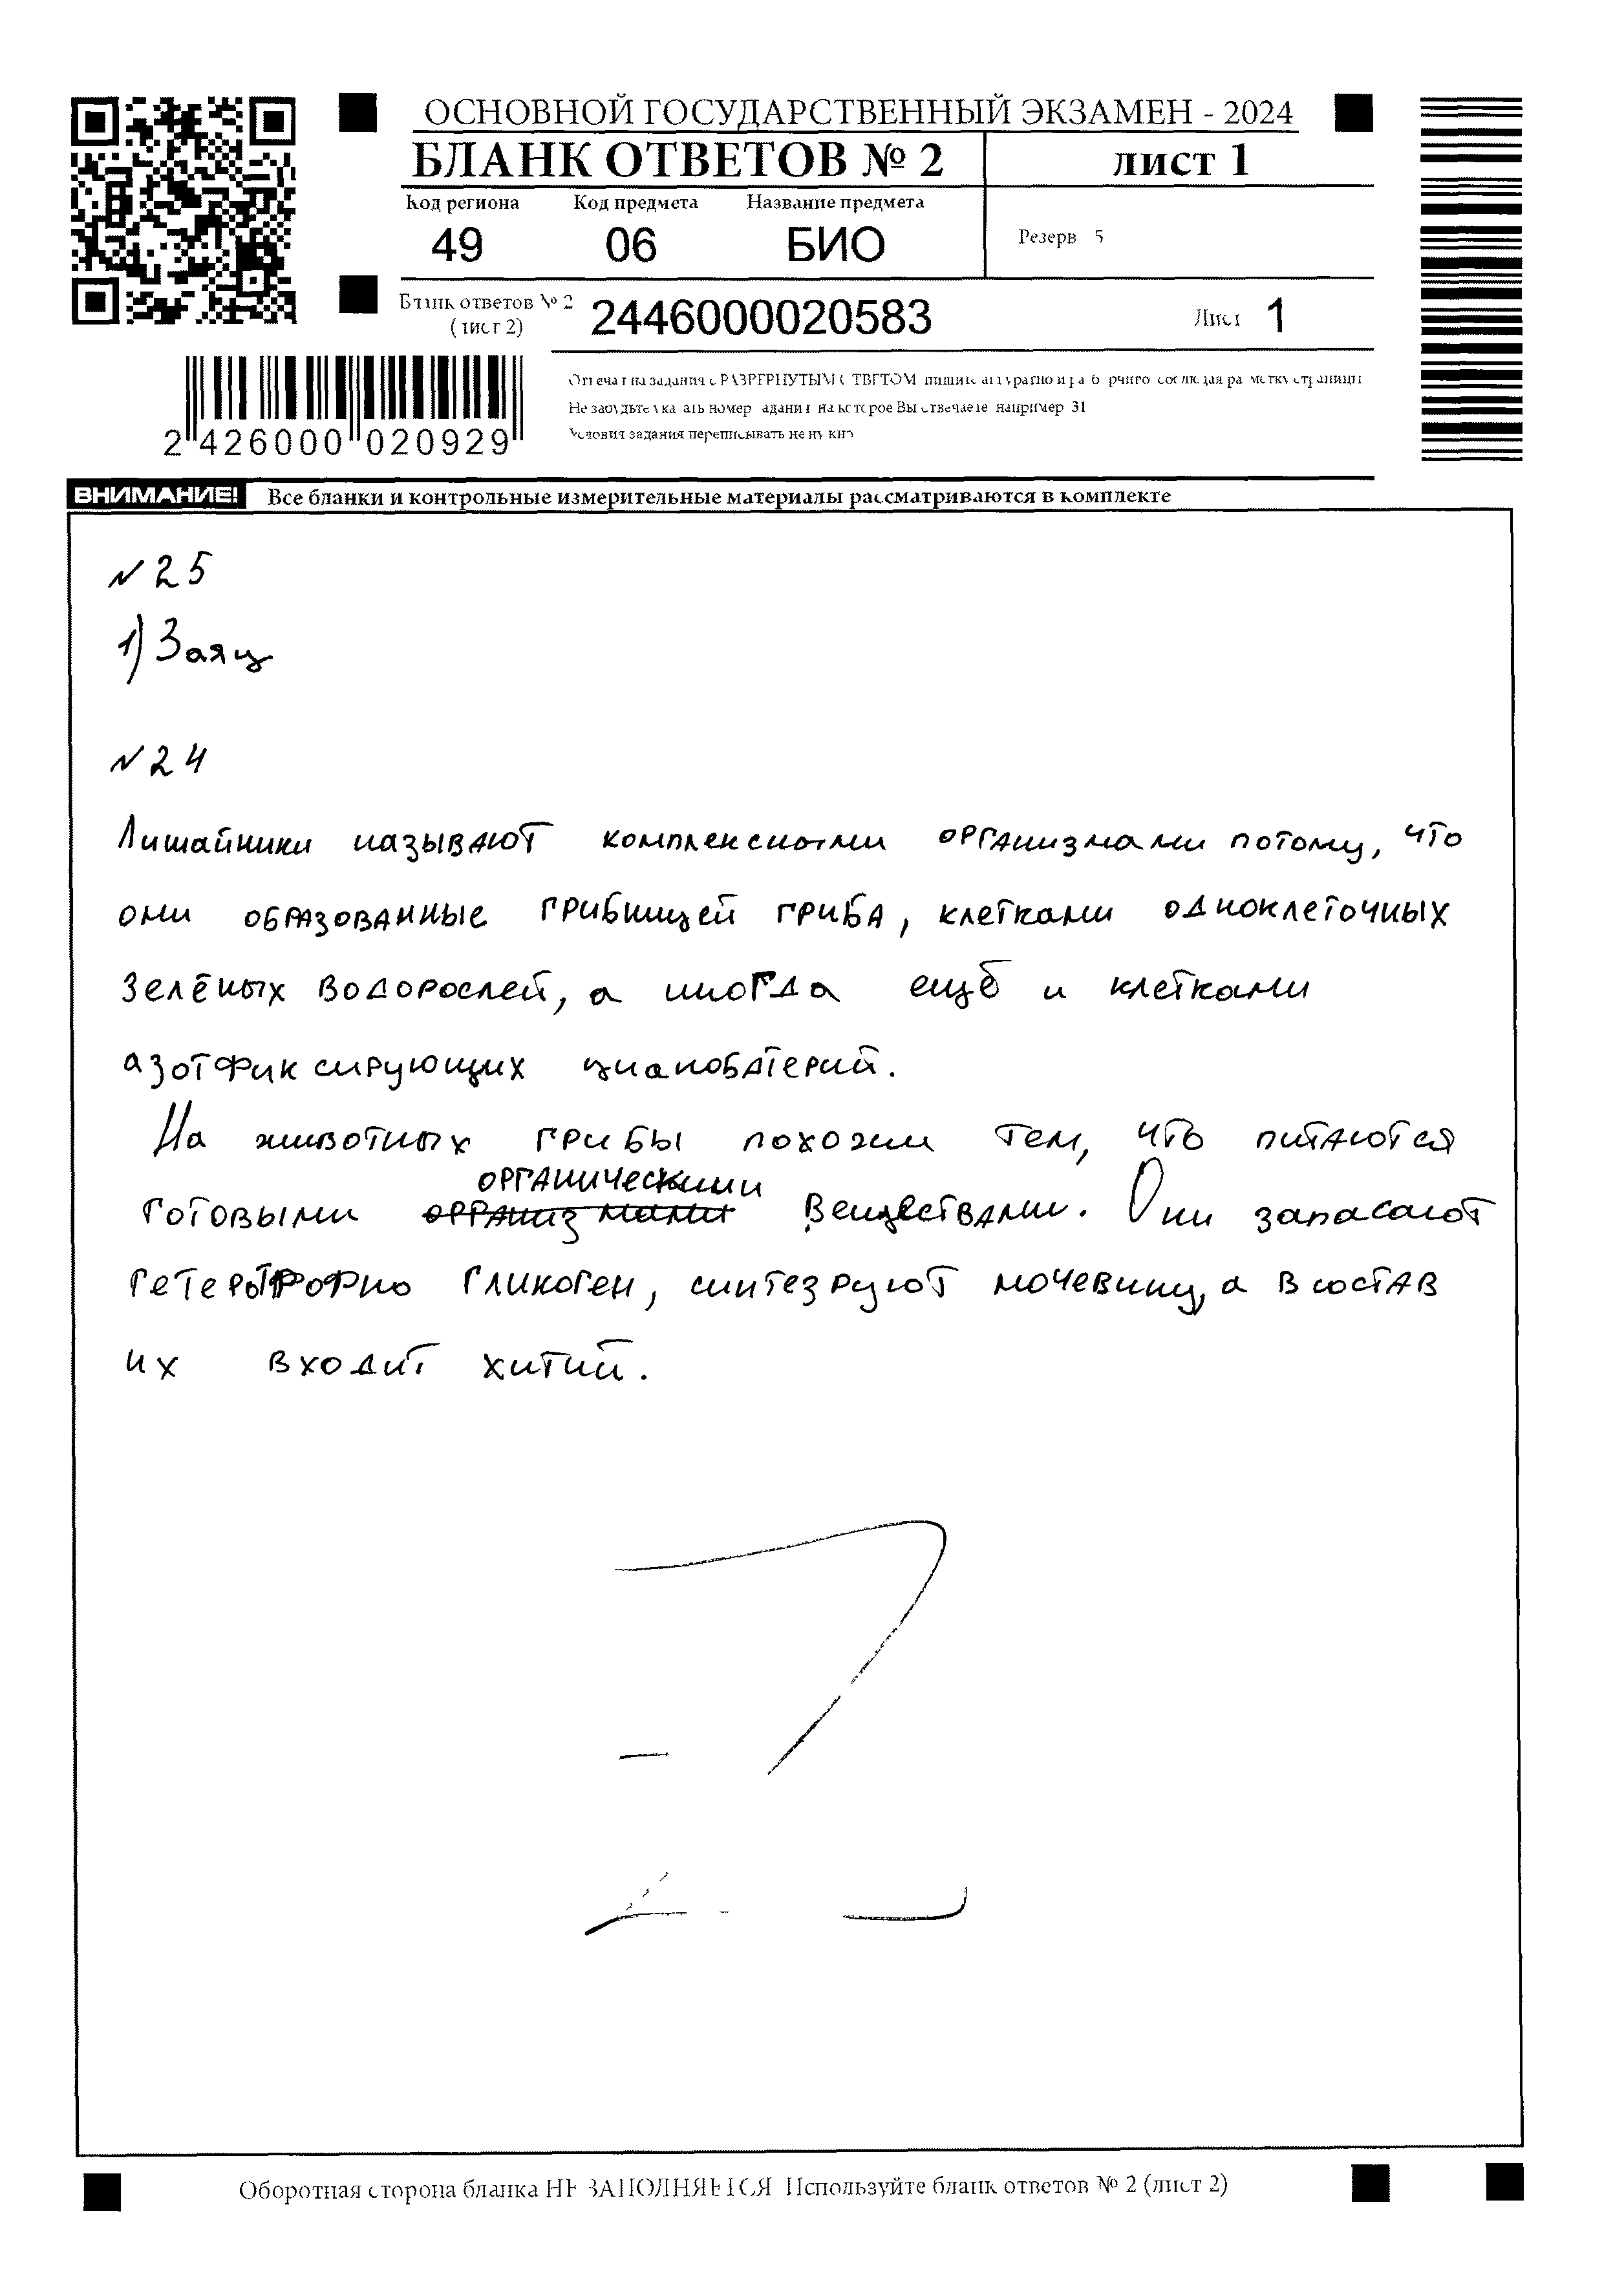 ОСНОВНОЙ ГОСУДАРСТВЕННЫЙ ЭКЗАМЕН - 2024
БЛАНК ОТВЕТОВ № 2
лист 1
Код региона Код предмета Название предмета
49 06 БИО
Резерв 5
Бланк ответов № 2
(лист 2)
2446000020583
Лист 1
2 426000 020929
Отвечая на задания с РАЗВЕРНУТЫМ ОТВЕТОМ пишите аккуратно и разборчиво соблюдая разметку страницы
Не забудьте указать номер задания на которое Вы отвечаете например 31
Условия задания переписывать не нужно
ВНИМАНИЕ! Все бланки и контрольные измерительные материалы рассматриваются в комплекте
№25
1) Заяц
№24
Лишайники называют комплексными организмами потому, что
они образованные грибницей гриба, клетками одноклеточных
зелёных водорослей, а иногда ещё и клетками
азотфиксирующих цианобатерий.
На животных грибы похожи тем, что питаются
органическими
готовыми организмами веществами. Они запасают
гетеротрофно гликоген, синтезруют мочевину, а в состав
их входит хитий.
Оборотная сторона бланка НЕ ЗАПОЛНЯЕТСЯ Используйте бланк ответов № 2 (лист 2)